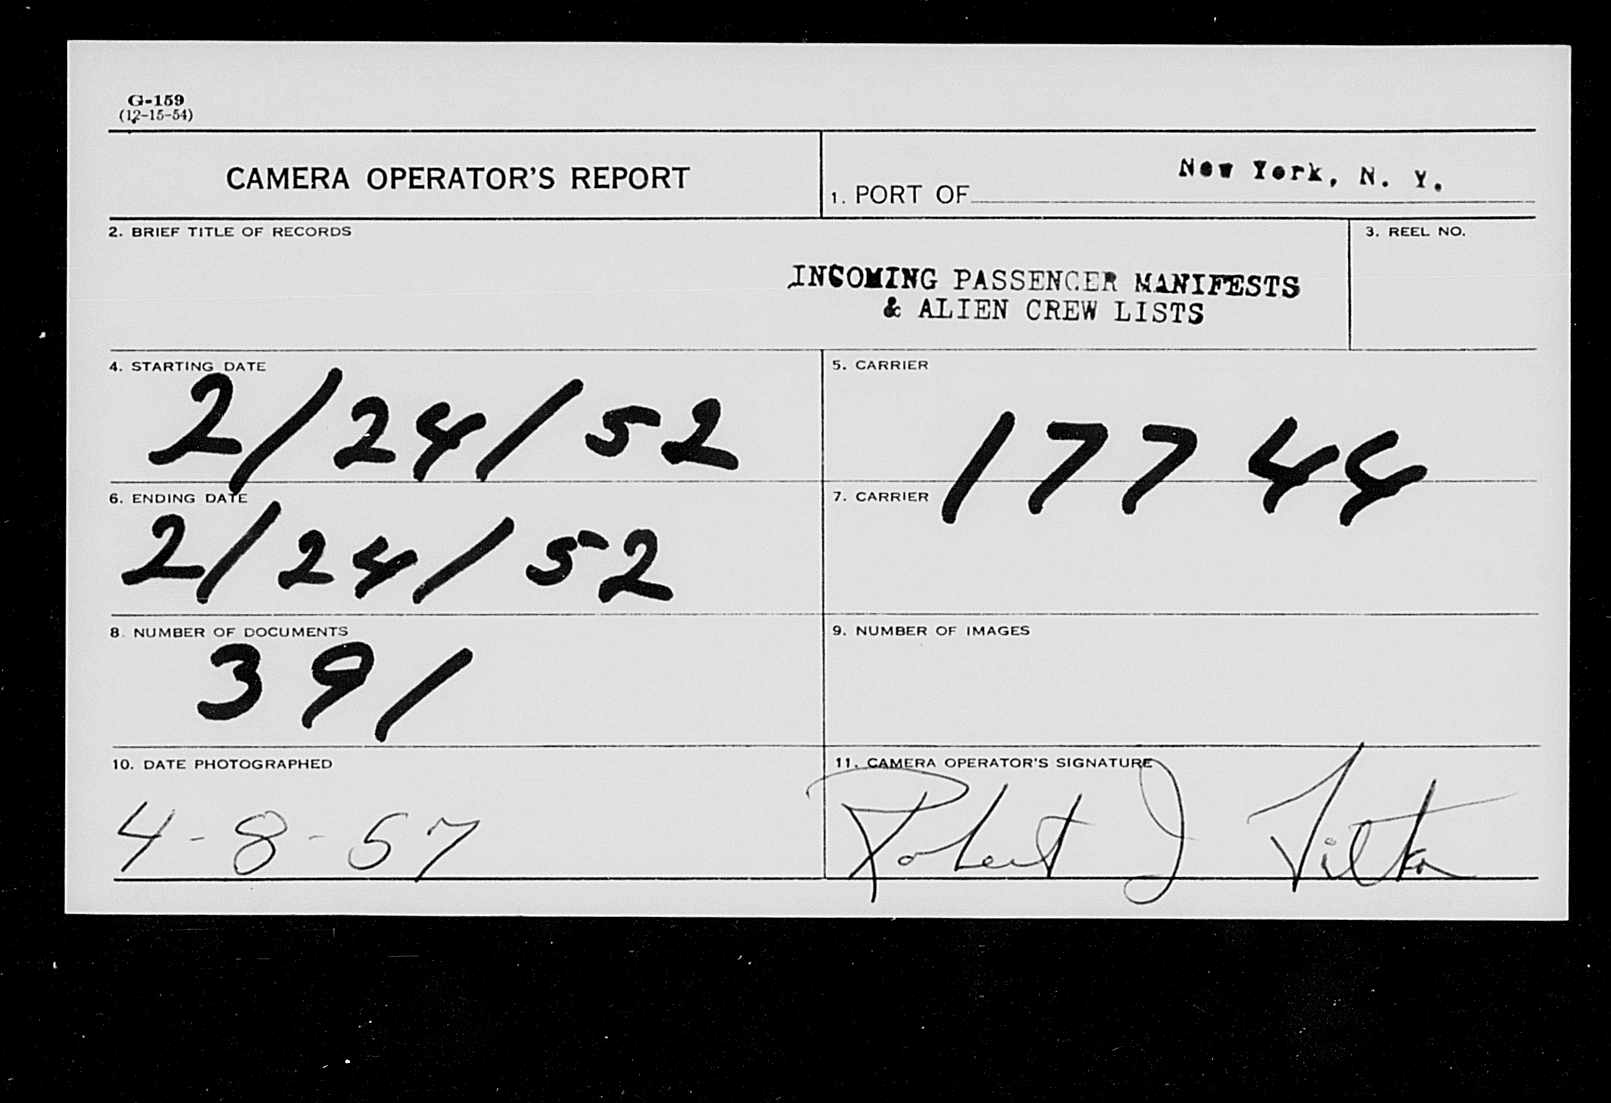 G-159
(12-15-54)
CAMERA OPERATOR'S REPORT
1. PORT OF New York, N. Y.
2. BRIEF TITLE OF RECORDS
3. REEL NO.
INCOMING PASSENGER MANIFESTS
& ALIEN CREW LISTS
4. STARTING DATE
2/24/52
5. CARRIER
17744
6. ENDING DATE
2/24/52
7. CARRIER
8. NUMBER OF DOCUMENTS
391
9. NUMBER OF IMAGES
10. DATE PHOTOGRAPHED
4-8-57
11. CAMERA OPERATOR'S SIGNATURE
Robert J